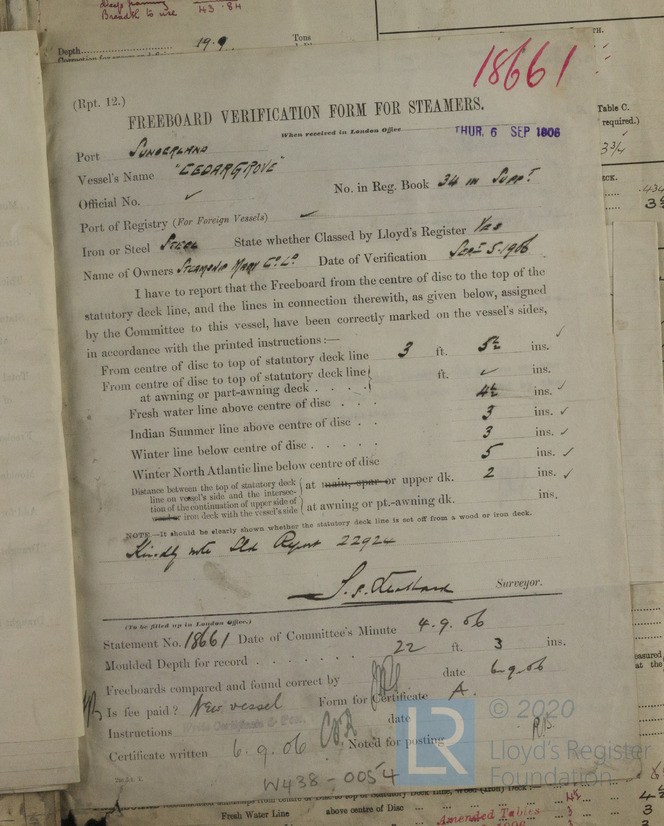 Breadth to use 43.84
Depth 19.9 Tons
18661
(Rpt. 12.)
FREEBOARD VERIFICATION FORM FOR STEAMERS.
When received in London Office THUR. 6 SEP 1906
Port SUNDERLAND
Vessel's Name "CEDARGROVE"
Official No. ✓ No. in Reg. Book 34 in Suppt
Port of Registry (For Foreign Vessels) ✓
Iron or Steel STEEL State whether Classed by Lloyd's Register Yes
Name of Owners Steamship Co Ld Date of Verification Sept 5. 1906
I have to report that the Freeboard from the centre of disc to the top of the
statutory deck line, and the lines in connection therewith, as given below, assigned
by the Committee to this vessel, have been correctly marked on the vessel's sides,
in accordance with the printed instructions:—
From centre of disc to top of statutory deck line 3 ft. 5½ ins. ✓
From centre of disc to top of statutory deck line
at awning or part-awning deck . . . . ft. ✓ ins.
Fresh water line above centre of disc . . . 4½ ins. ✓
Indian Summer line above centre of disc . . 3 ins. ✓
Winter line below centre of disc . . . . . 3 ins. ✓
Winter North Atlantic line below centre of disc 5 ins. ✓
Distance between the top of statutory deck
line on vessel's side and the intersec-
tion of the continuation of upper side of
wood or iron deck with the vessel's side
at main, spar or upper dk. 2 ins. ✓
at awning or pt.-awning dk. ins.
NOTE.—It should be clearly shown whether the statutory deck line is set off from a wood or iron deck.
Kindly note Sld Report 22924
Surveyor.
(To be filled up in London Office.)
Statement No. 18661 Date of Committee's Minute 4.9.06
Moulded Depth for record . . . . . . . 22 ft. 3 ins.
Freeboards compared and found correct by date 6.9.06
Is fee paid? New vessel Form for Certificate A.
Instructions date
Certificate written 6.9.06 Noted for posting
W438-0054
Table C.
required.)
3¾
Fresh Water Line above centre of Disc
Amended Tables
1906
© 2020
LR
Lloyd's Register
Foundation